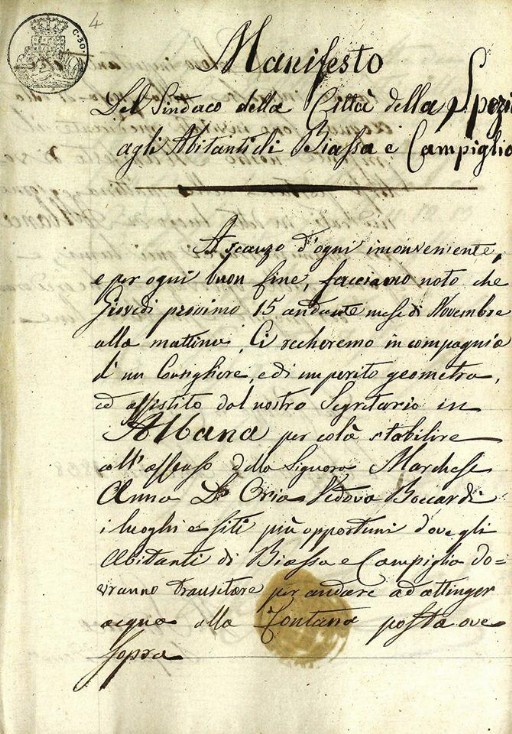 4
C. 50
Manifesto
Del Sindaco della Città della Spezia
agli Abitanti di Biassa e Campiglia
A scanzo d'ogni inconveniente,
e per ogni buon fine, facciamo noto, che
Giovedì prossimo 15 andante mese di Novembre
alla mattina, Ci recheremo in compagnia
d'un Consigliere, e di un perito geometra,
ed assistito dal nostro Segretario in
Albana per colà stabilire
coll'assenso della Signora Marchesa
Anna D'Oria Vedova Boccardi
i luoghi e siti più opportuni dove gli
Abitanti di Biassa e Campiglia do=
vranno transitare per andare ad attinger
acqua alla Fontana posta ove
Sopra